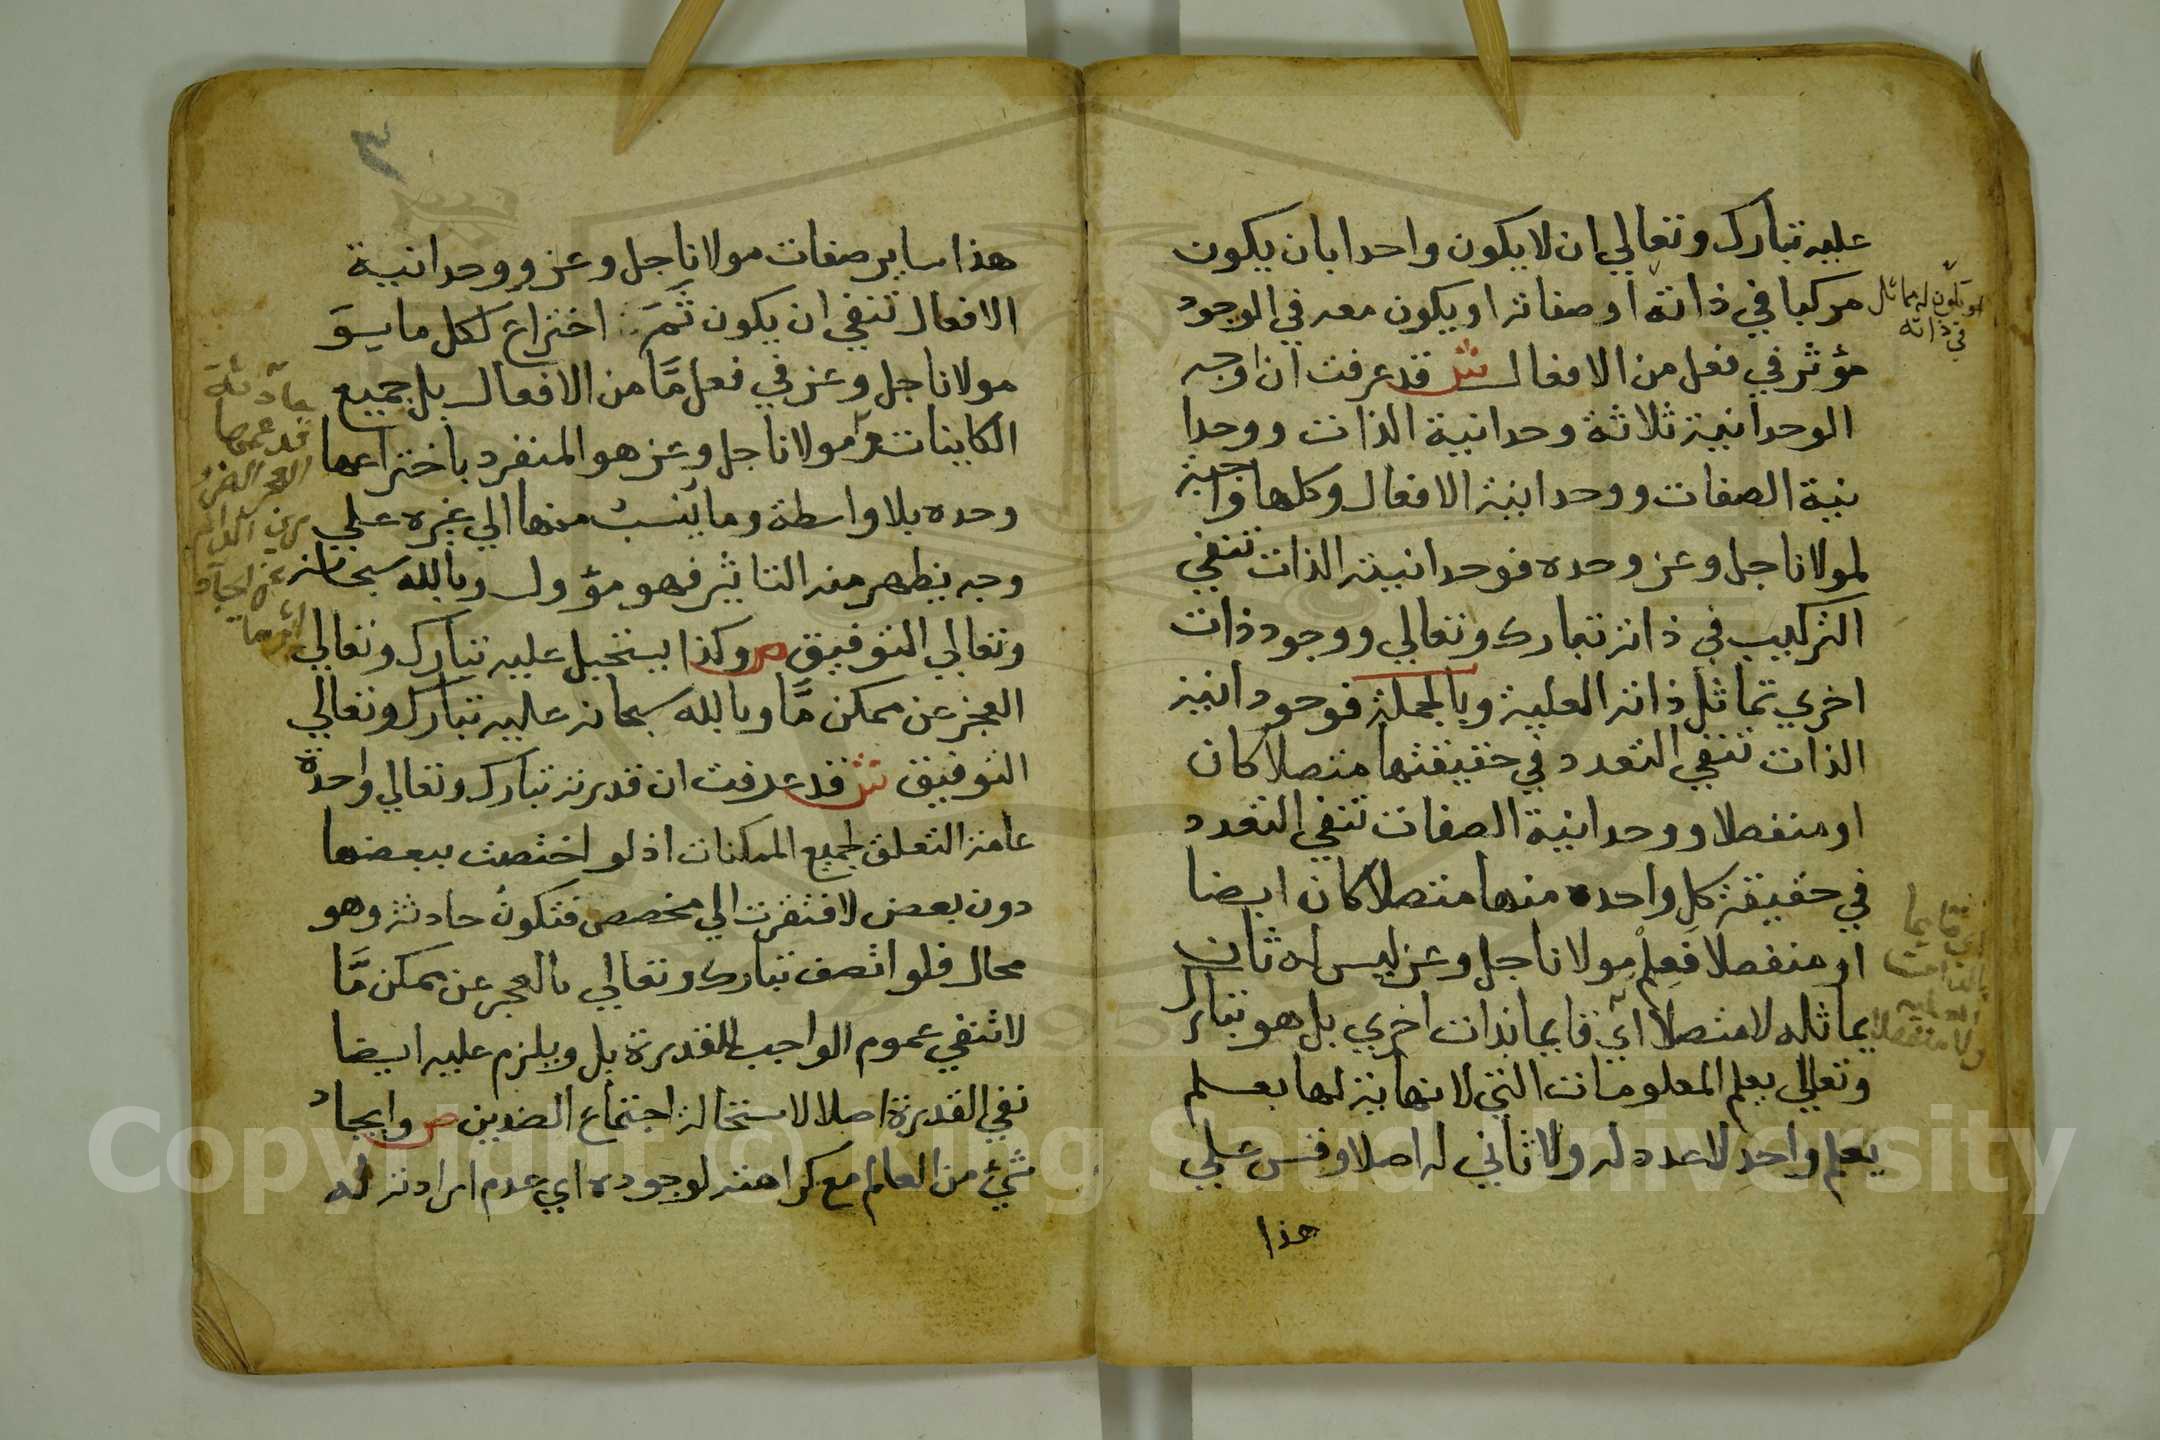 عليه تبارك وتعالي ان لا يكون واحدا بان يكون
مركبا في ذاته او صفاته او يكون معه في الوجود
او يكون له مماثل
في ذاته
مؤثر في فعل من الافعال ش قد عرفت ان اوجه
الوحدانية ثلاثة وحدانية الذات ووحدا
نية الصفات ووحدانية الافعال وكلها واجبة
لمولانا جل وعز وحده فوحدانية الذات تنفي
التركيب في ذاته تبارك وتعالي ووجود ذات
اخري تماثل ذاته العلية وبالجملة فوحدانية
الذات تنفي التعدد في حقيقتها متصلا كان
او منفصلا ووحدانية الصفات تنفي التعدد
في حقيقة كل واحده منها متصلا كان ايضا
او منفصلا فعلم مولانا جل وعز ليس له ثان
يماثله لا متصلا اي قايما بذات اخري بل هو تبارك
ولا منفصلا
وتعالي يعلم المعلومات التي لا نهاية لها بعلم
يعلم واحد لا عدد له ولا ثاني له اصلا وقس علي
هذا
هذا ساير صفات مولانا جل وعز ووحدانية
الافعال تنفي ان يكون ثَمَّ اختراع لكل ما سوَ
مولانا جل وعز في فعل مَّا من الافعال بل جميع
الكاينات مولانا جل وعز هو المنفرد باختراعها
حادثة
قد عمها
العجز
وحده بلا واسطة وما ينسب منها الي غيره علي
وجه يظهر منه التاثير فهو مؤول وبالله سبحانه
وتعالي التوفيق ص وكذا يستحيل عليه تبارك وتعالي
العجز عن ممكن مَّا وبالله سبحانه عليه تبارك وتعالي
التوفيق ش قد عرفت ان قدرته تبارك وتعالي واحدة
عامة التعلق لجميع الممكنات اذ لو اختصت ببعضها
دون بعض لافتقرت الي مخصص فتكون حادثة وهو
محال فلو اتصف تبارك وتعالي بالعجز عن ممكن مَّا
لانتفي عموم الواجب للقدرة بل ويلزم عليه ايضا
نفي القدرة اصلا لاستحالة اجتماع الضدين ص وايجاد
شيء من العالم مع كراهته لوجوده اي عدم ارادته له
Copyright © King Saud University